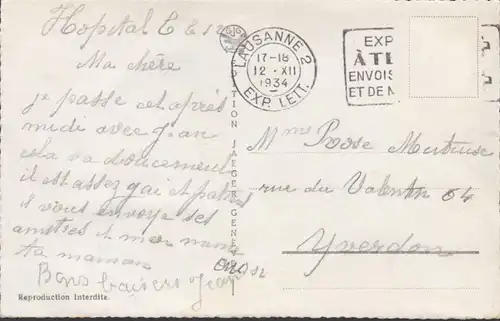 Hopital C &
Ma chère
je passe cet après
midi avec Jean
cela va doucement
il est assez gai et patient
il vous envoye ses
amitiés et moi
ta maman
Bons baisers Jean
Reproduction Interdite.
ÉDITION JAEGER GENÈVE
LAUSANNE 2
17-18
12·XII
1934
EXP. LETT.
EXP
À TE
ENVOIS
ET DE N
Mme Rose
rue du Valentin 64
Yverdon